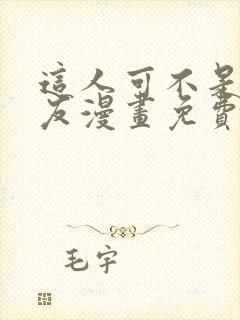 這人可不是
友漫畫免費
毛宇